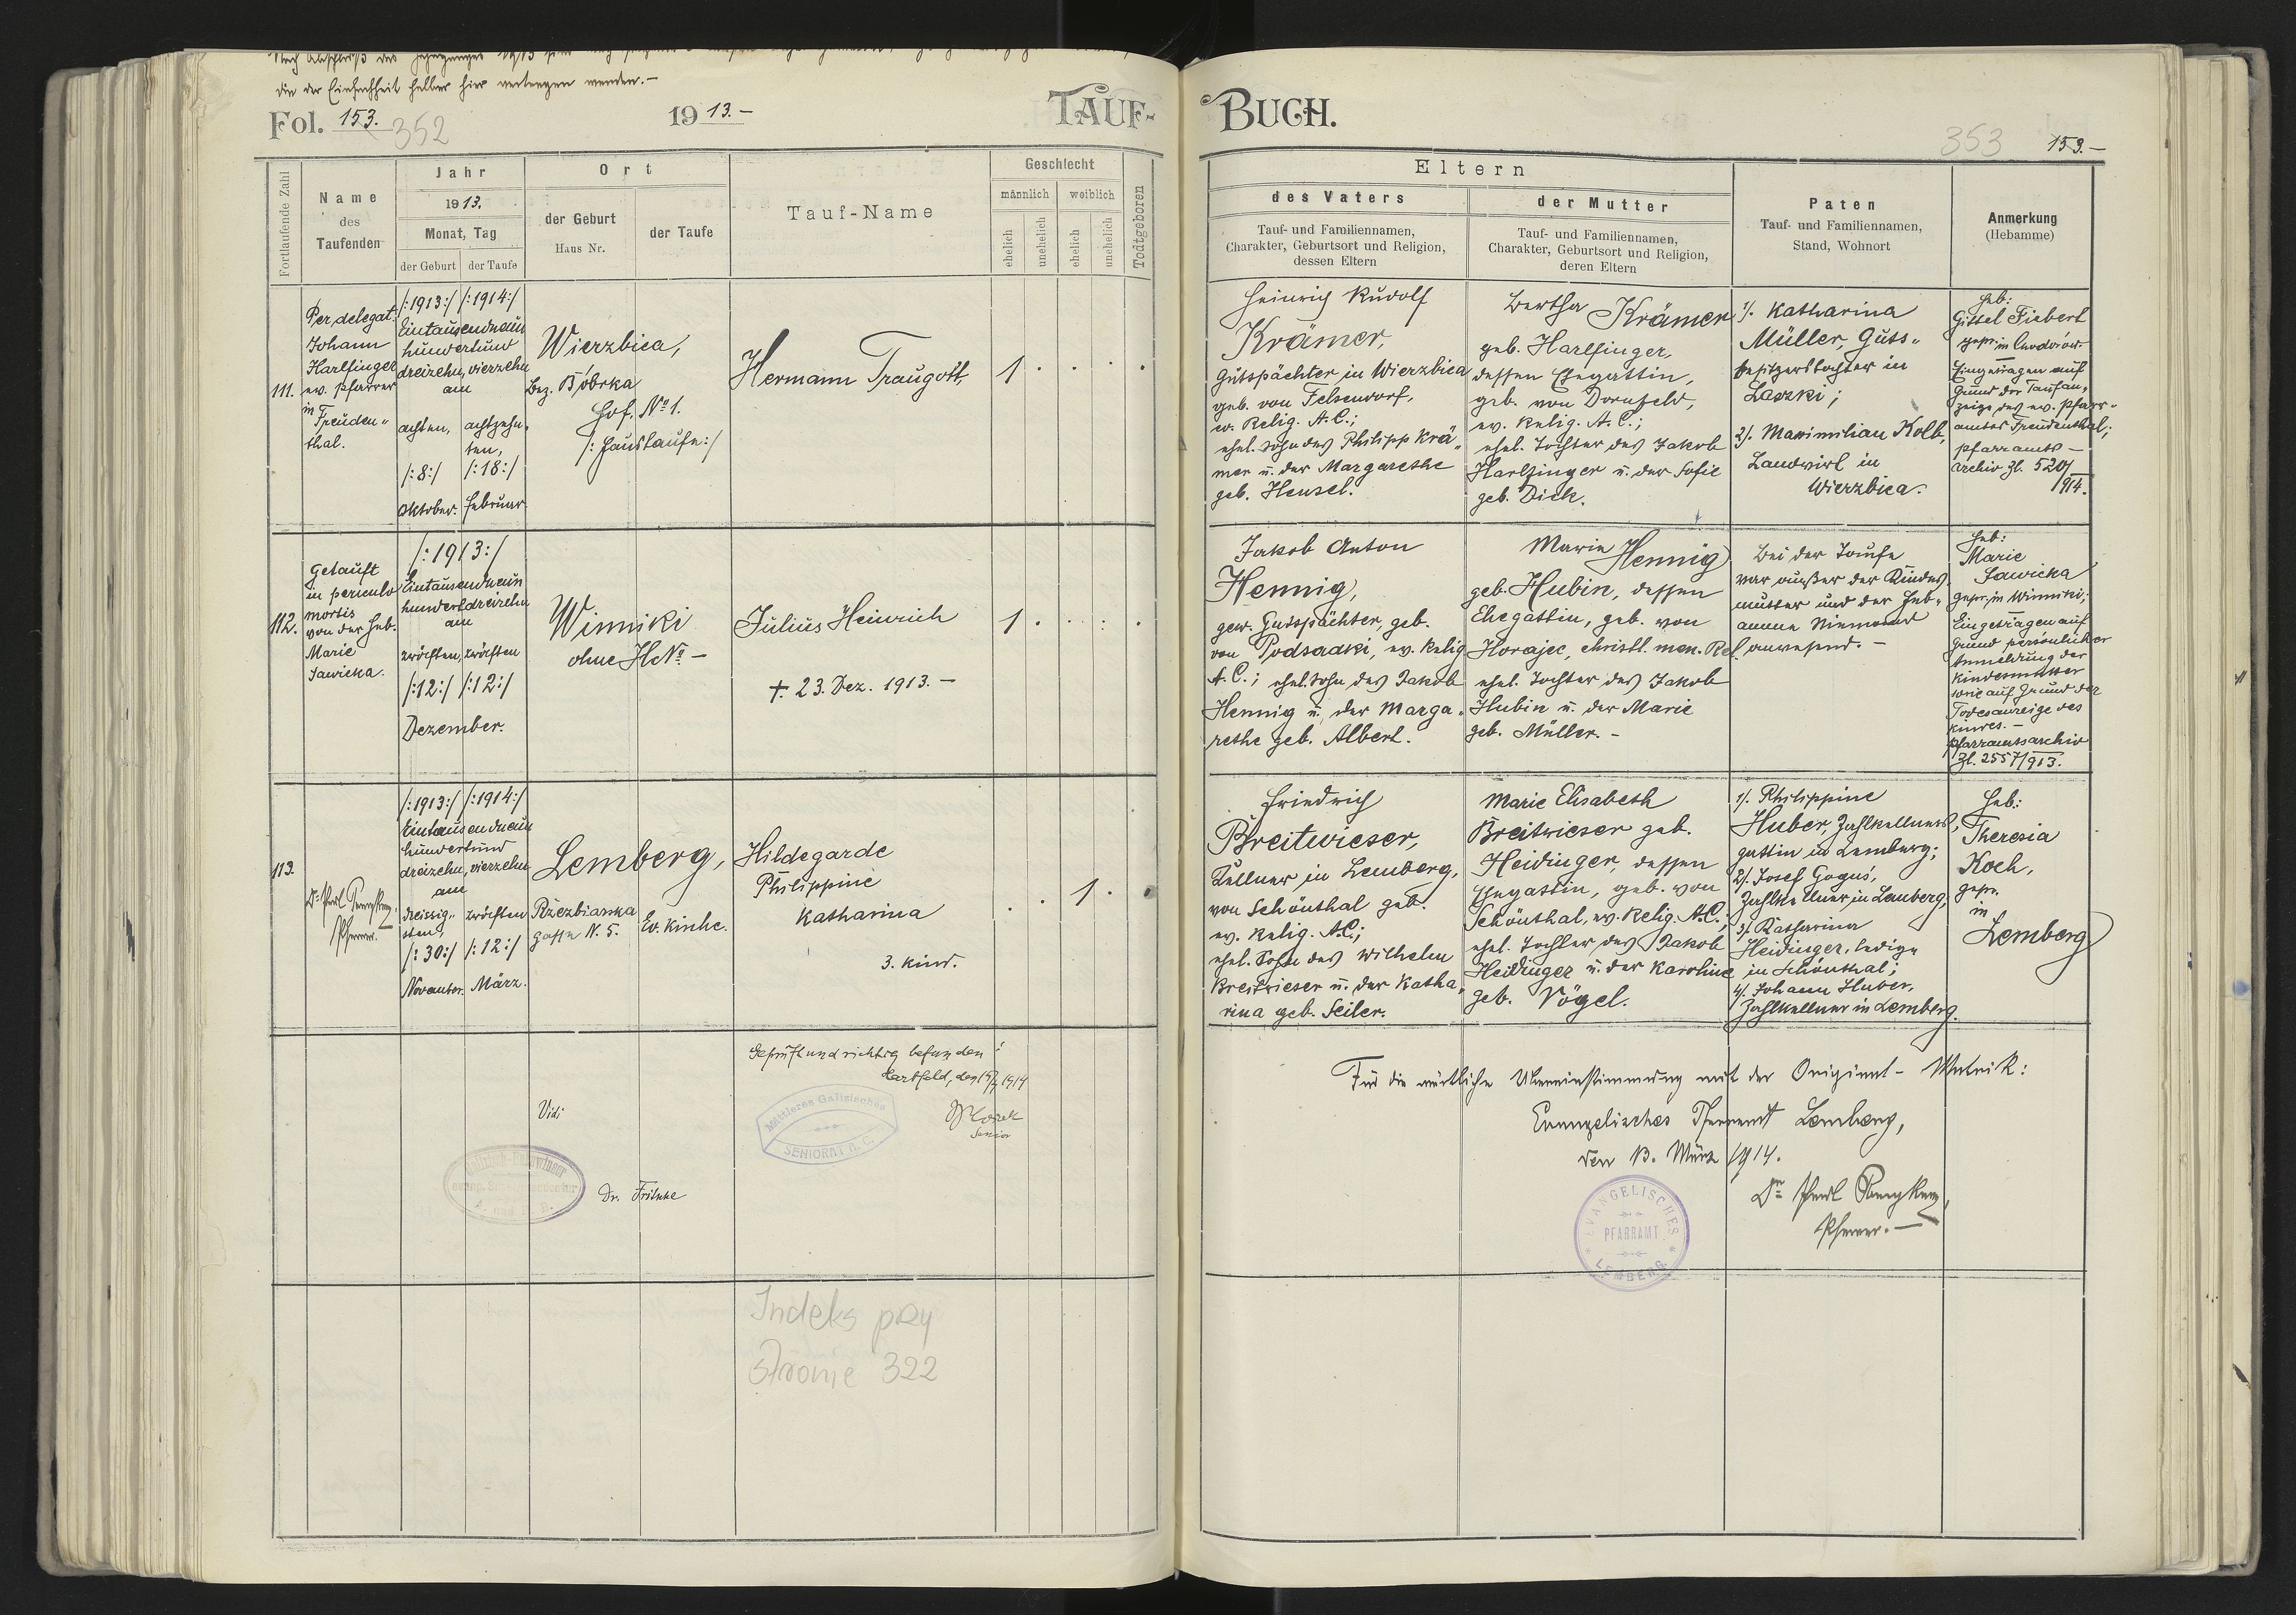 die der Einfachheit halber hier vertragen werden.-
Fol. 153. 352
1913.-
TAUF-
BUCH.
353 153.-
Fortlaufende Zahl
Name
des
Taufenden
Jahr
1913.
Monat, Tag
der Geburt
der Taufe
Ort
der Geburt
Haus Nr.
der Taufe
Tauf-Name
Geschlecht
männlich
weiblich
ehelich
unehelich
ehelich
unehelich
Todtgeboren
Eltern
des Vaters
Tauf- und Familiennamen,
Charakter, Geburtsort und Religion,
dessen Eltern
der Mutter
Tauf- und Familiennamen,
Charakter, Geburtsort und Religion,
deren Eltern
Paten
Tauf- und Familiennamen,
Stand, Wohnort
Anmerkung
(Hebamme)
111.
Per delegat.
Johann
Harlfinger
ev. Pfarrer
in
Freuden„
thal.
/:1913:/ /:1914:/
Eintausendneun
hundertund
dreizehn, vierzehn
am
achten, achtzehn„
ten,
/:8:/ /:18:/
Oktober. Februar.
Wierzbica,
Bez. Bóbrka
Hof, No 1.
/:Haustaufe:/
Hermann Traugott,
1 . . . .
Heinrich Rudolf
Krämer,
Gutspächter in Wierzbica
geb. von Felsendorf,
ev. Relig. A.C.;
ehel. Sohn des Philipp Krä„
mer u. der Margarethe
geb. Hensel.
Bertha Krämer
geb. Harlfinger,
dessen Ehegattin,
geb. von Dornfeld,
ev. Relig. A.C.;
ehel. Tochter des Jakob
Harlfinger u. der Sofie
geb. Dick.
1/. Katharina
Müller, Guts„
besitzerstochter in
Laszki;
2/. Maximilian Kolb,
Landwirt in
Wierzbica.
Heb:
Gittel Fiebert
gepr. in
Eingetragen auf
Grund der Taufan„
zeige des ev. Pfarr„
amtes Freudenthal;
Pfarramts-
archiv Zl. 520/
1914.
112.
Getauft
in periculo
mortis
von der Heb.
Marie
Sawicka.
/:1913:/
Eintausendneun
hundertdreizehn
am
zwölften, zwölften
/:12:/ /:12:/
Dezember.
Winniki
ohne H.No -
Julius Heinrich
+. 23. Dez. 1913. -
1 . . : .
Jakob Anton
Hennig,
gew. Gutspächter, geb.
von Podsadki, ev. Relig.
A.C.; ehel. Sohn des Jakob
Hennig u. der Marga„
rethe geb. Albert.
Marie Hennig
geb. Hubin, dessen
Ehegattin, geb. von
Horajec, christl. men. Rel.
ehel. Tochter des Jakob
Hubin u. der Marie
geb. Müller. -
Bei der Taufe
war außer der Kindes„
mutter und der Heb„
amme Niemand
anwesend. -
Heb:
Marie
Sawicka
gepr. in Winniki;
Eingetragen auf
Grund persönlicher
Anmeldung der
Kindesmutter
sowie auf Grund der
Todesanzeige des
Kindes. -
Pfarramtsarchiv
Zl. 2557/913.
113.
Pfarrer.
/:1913:/ /:1914:/
Eintausendneun
hundertund
dreizehn, vierzehn
am
dreissig„ zwölften
sten,
/:30:/ /:12:/
November. März.
Lemberg,
Rzezbiarska
gasse N. 5.
Ev. Kirche.
Hildegarde
Philippine
Katharina
3. Kind.
. . 1 . .
Friedrich
Breitwieser,
Kellner in Lemberg,
von Schönthal geb.
ev. Relig. A.C.;
ehel. Sohn des Wilhelm
Breitwieser u. der Katha„
rina geb. Seiler.
Marie Elisabeth
Breitwieser geb.
Heidinger, dessen
Ehegattin, geb. von
Schönthal, ev. Relig. A.C.;
ehel. Tochter des Jakob
Heidinger u. der Karoline
geb. Vögel.
1/. Philippine
Huber, Zahlkellners„
gattin in Lemberg;
2/. Josef Goguś,
Zahlkellner in Lemberg,
3/. Katharina
Heidinger, ledig„
in Schönthal;
4/. Johann Huber,
Zahlkellner in Lemberg.
Heb:
Theresia
Koch,
gepr.
in
Lemberg
Geprüft und richtig befunden:
Hartfeld, den 1914
Senior
Mittleres Galizisches
SENIORAT A. C.
Vidi
Dr. Fritsche
Für die wörtliche Übereinstimmung mit der Original-Matrik:
Evangelisches Pfarramt Lemberg,
den 13. März 1914.
Pfarrer. -
EVANGELISCHES
PFARRAMT
LEMBERG
Indeks przy
stronie 322